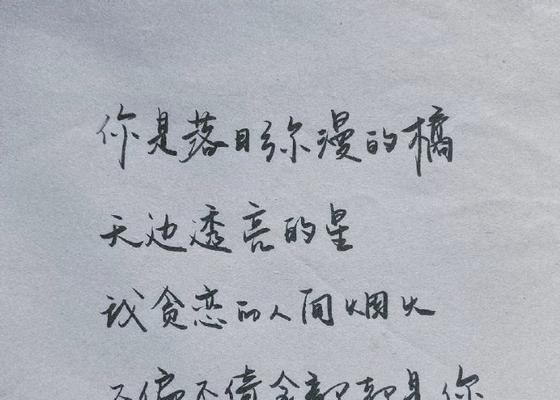 你是落日弥漫的橘
天边透亮的星
我贪恋的人间烟火
不偏不倚全都是你